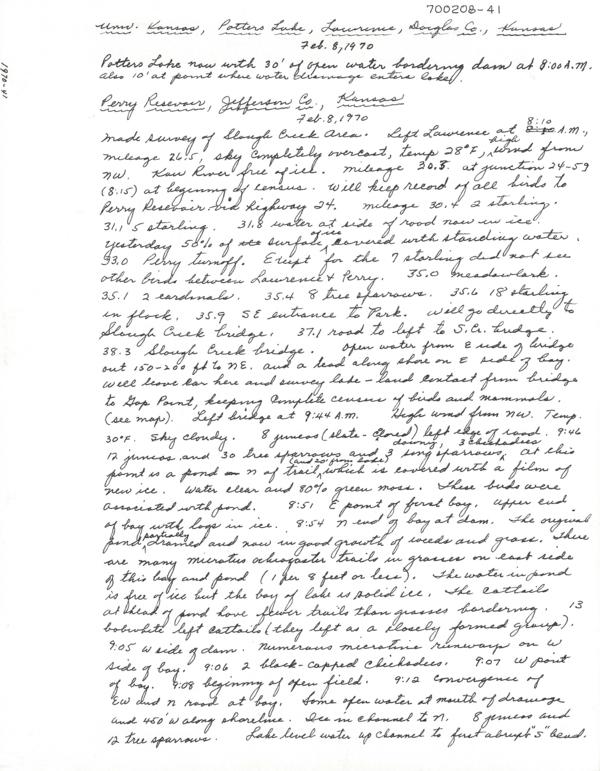 700208-41
Univ. Kansas, Potters Lake, Lawrence, Douglas Co., Kansas
Feb. 8, 1970
1970-41
Potters Lake now with 30' of open water bordering dam at 8:00 A.M.
Also 10' at point where water drainage enters lake.
Perry Resevoir, Jefferson Co., Kansas
Feb. 8, 1970
8:10
Made survey of Slough Creek Area. Left Lawrence at A.M.,
mileage 26.5, sky completely overcast, temp 28°F, high wind from
NW. Kaw River free of ice. Mileage 30.3 at junction 24-59
(8:15) at beginning of census. Will keep record of all birds to
Perry Resevoir via highway 24. Mileage 30.4 2 starling.
31.1 5 starling. 31.8 water at side of road now in ice.
Yesterday 50% of surface of ice covered with standing water.
33.0 Perry turnoff. Except for the 7 starling did not see
other birds between Lawrence & Perry. 35.0 meadowlark.
35.1 2 cardinals. 35.4 8 tree sparrows. 35.6 18 starling
in flock. 35.9 SE entrance to Park. Will go directly to
Slough Creek bridge. 37.1 road to left to S. Cr. bridge.
38.3 Slough Creek bridge. Open water from E side of bridge
out 150-200 ft to NE. and a lead along shore on E side of bay.
Will leave car here and survey lake-land contact from bridge
to Gap Point, keeping complete census of birds and mammals.
(see map). Left bridge at 9:44 A.M. High wind from NW. Temp.
30°F. Sky cloudy. 8 juncos (slate-colored) left edge of road. 9:46
12 juncos and 30 tree sparrows and downy, 3 chickadees 3 song sparrows, at this
point is a pond n of trail (and 20' from lake) which is covered with a film of
new ice. Water clear and 80% green moss. These birds were
associated with pond. 8:51 E point of first bay. Upper end
of bay with logs in ice. 8:54 N end of bay at dam. The original
pond partially drained and now in good growth of weeds and grass. There
are many microtus ochrogaster trails in grasses on east side
of this bay and pond (1 per 8 feet or less). The water in pond
is free of ice but the bay of lake is solid ice. The cattails
at head of pond have fewer trails than grasses bordering. 13
bobwhite left cattails (they left as a closely formed group).
9:05 W side of dam. Numerous microtine runways on W
side of bay. 9:06 2 black-capped chickadees. 9:07 W point
of bay. 9:08 beginning of open field. 9:12 convergence of
EW and N road at bay. Some open water at mouth of drainage
and 450' W along shoreline. Ice in channel to N. 8 juncos and
12 tree sparrows. Lake level water up channel to first abrupt "S" bend.